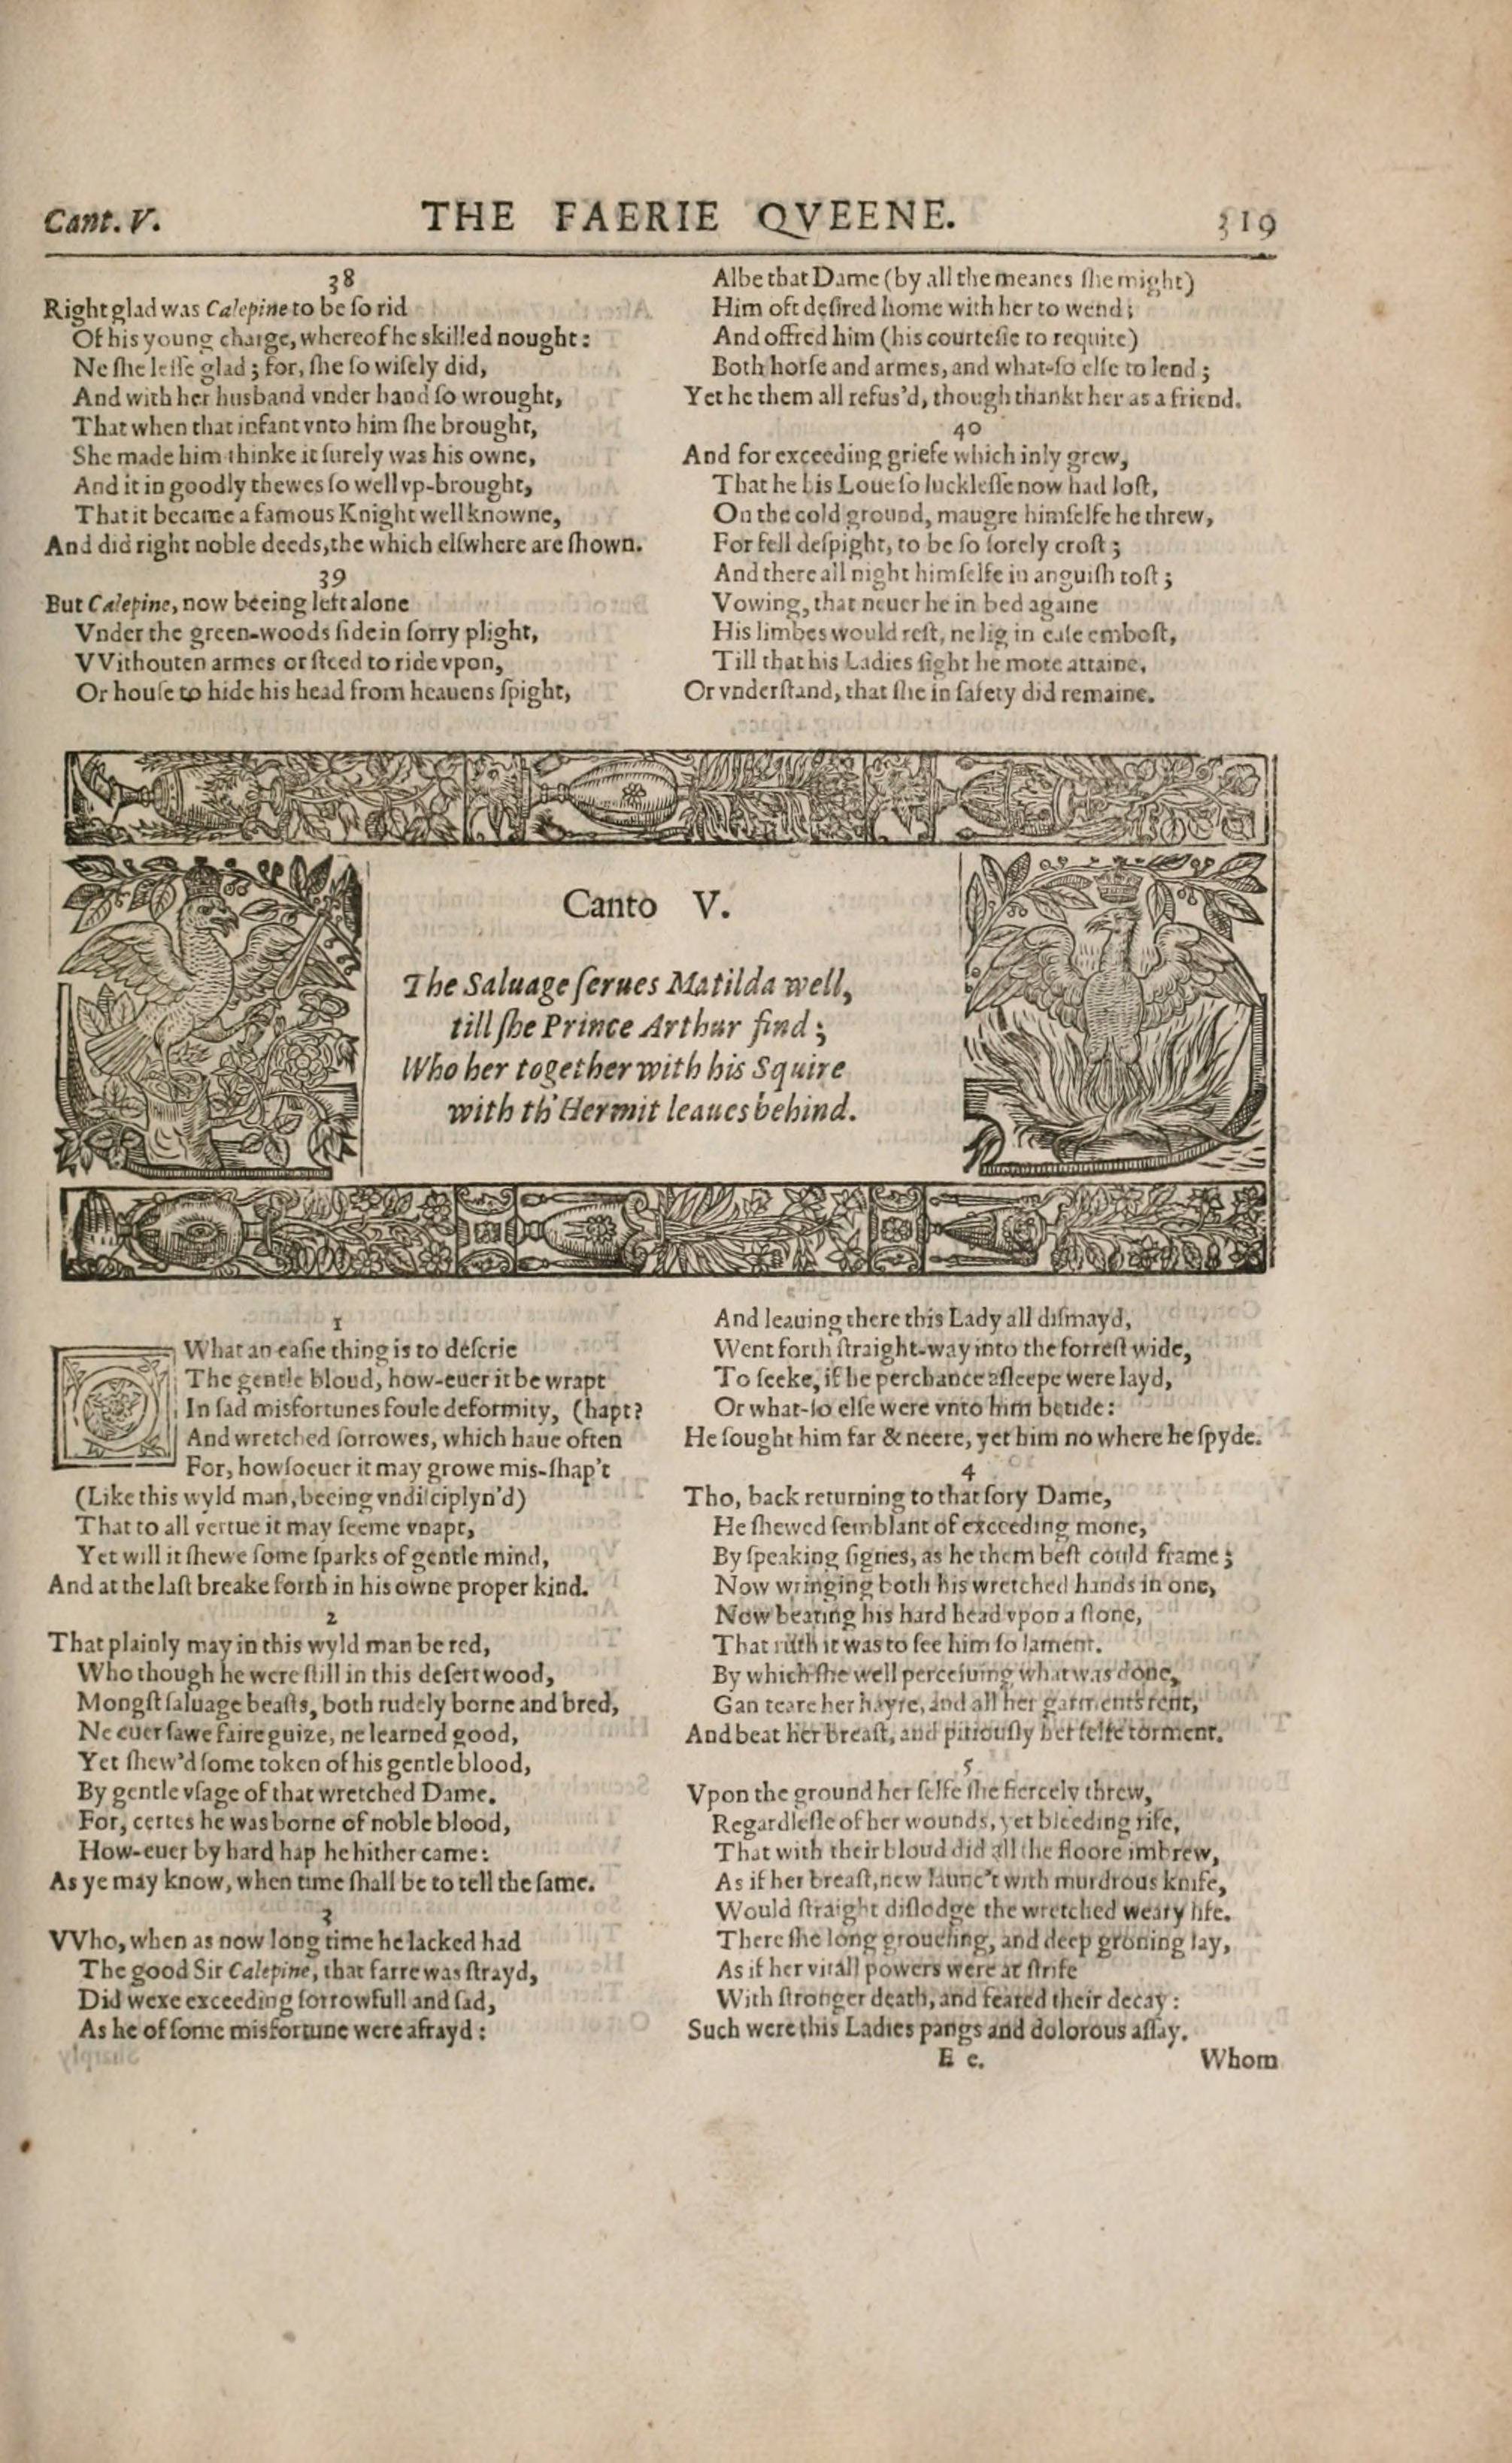 Cant. V.
THE FAERIE QVEENE.
319
38
Right glad was Calepine to be ſo rid
Of his young charge, whereof he skilled nought:
Ne ſhe leſſe glad; for, ſhe ſo wiſely did,
And with her husband vnder hand ſo wrought,
That when that infant vnto him ſhe brought,
She made him thinke it ſurely was his owne,
And it in goodly thewes ſo well vp-brought,
That it became a famous Knight well knowne,
And did right noble deeds, the which elſwhere are ſhown.
39
But Calepine, now beeing left alone
Vnder the green-woods ſide in ſorry plight,
VVithouten armes or ſteed to ride vpon,
Or houſe to hide his head from heauens ſpight,
Albe that Dame (by all the meanes ſhe might)
Him oft deſired home with her to wend;
And offred him (his courteſie to requite)
Both horſe and armes, and what-ſo elſe to lend;
Yet he them all refus'd, though thankt her as a friend.
40
And for exceeding griefe which inly grew,
That he his Loue ſo luckleſſe now had loſt,
On the cold ground, maugre himſelfe he threw,
For fell deſpight, to be ſo ſorely croſt;
And there all night himſelfe in anguiſh toſt;
Vowing, that neuer he in bed againe
His limbes would reſt, ne lig in eaſe emboſt,
Till that his Ladies ſight he mote attaine,
Or vnderſtand, that ſhe in ſafety did remaine.
Canto V.
The Saluage ſerues Matilda well,
till ſhe Prince Arthur find;
Who her together with his Squire
with th' Hermit leaues behind.
1
O What an eaſie thing is to deſcrie
The gentle bloud, how-euer it be wrapt
In ſad misfortunes foule deformity, (hapt?
And wretched ſorrowes, which haue often
For, howſoeuer it may growe mis-ſhap't
(Like this wyld man, beeing vndiſciplyn'd)
That to all vertue it may ſeeme vnapt,
Yet will it ſhewe ſome ſparks of gentle mind,
And at the laſt breake forth in his owne proper kind.
2
That plainly may in this wyld man be red,
Who though he were ſtill in this deſert wood,
Mongſt ſaluage beaſts, both rudely borne and bred,
Ne euer ſawe faire guize, ne learned good,
Yet ſhew'd ſome token of his gentle blood,
By gentle vſage of that wretched Dame.
For, certes he was borne of noble blood,
How-euer by hard hap he hither came:
As ye may know, when time ſhall be to tell the ſame.
3
VVho, when as now long time he lacked had
The good Sir Calepine, that farre was ſtrayd,
Did wexe exceeding ſorrowfull and ſad,
As he of ſome misfortune were afrayd:
And leauing there this Lady all diſmayd,
Went forth ſtraight-way into the forreſt wide,
To ſeeke, if he perchance aſleepe were layd,
Or what-ſo elſe were vnto him betide:
He ſought him far & neere, yet him no where he ſpyde.
4
Tho, back returning to that ſory Dame,
He ſhewed ſemblant of exceeding mone,
By ſpeaking ſignes, as he them beſt could frame;
Now wringing both his wretched hands in one,
Now beating his hard head vpon a ſtone,
That ruth it was to ſee him ſo lament.
By which ſhe well perceiuing what was done,
Gan teare her hayre, and all her garments rent,
And beat her breaſt, and pitiouſly her ſelfe torment.
5
Vpon the ground her ſelfe ſhe fiercely threw,
Regardleſſe of her wounds, yet bleeding rife,
That with their bloud did all the floore imbrew,
As if her breaſt, new launc't with murdrous knife,
Would ſtraight diſlodge the wretched weary life.
There ſhe long groueling, and deep groning lay,
As if her vitall powers were at ſtrife
With ſtronger death, and feared their decay:
Such were this Ladies pangs and dolorous aſſay.
E e.
Whom